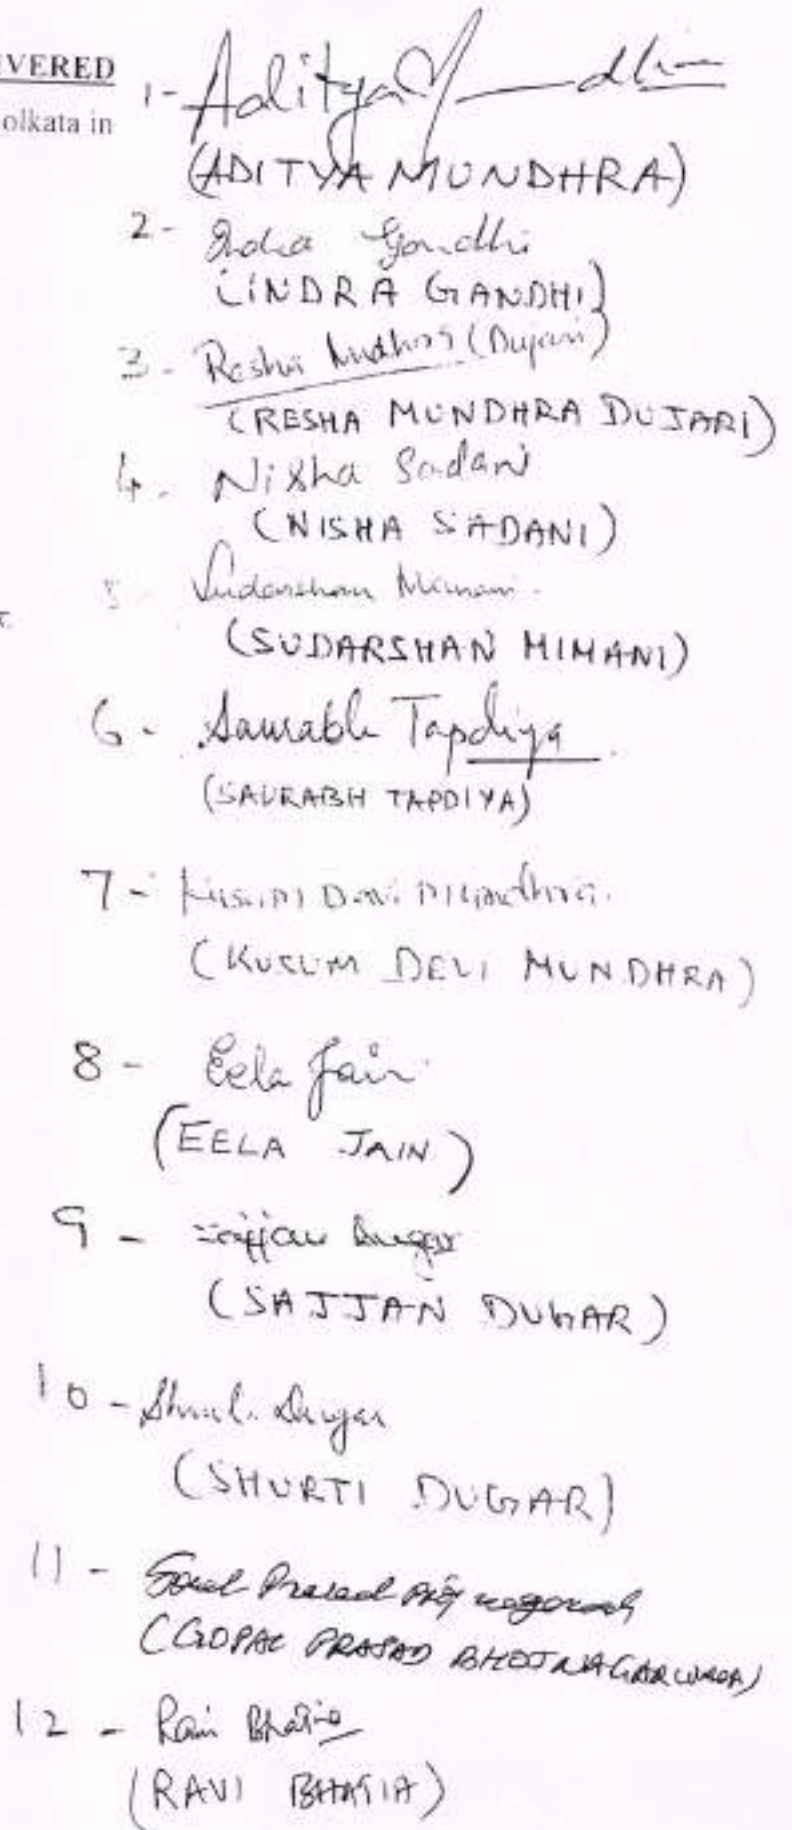 VERED
olkata in
1- Aditya M dhra
(ADITYA MUNDHRA)
2- Indra Gandhi
(INDRA GANDHI)
3- Resha Mudhra (Dujari)
(RESHA MUNDHRA DUJARI)
4. Nisha Sadani
(NISHA SADANI)
5 Sudarshan Mimani.
(SUDARSHAN MIMANI)
6- Saurabh Tapdiya
(SAURABH TAPDIYA)
7- Kusum Devi Mundhra.
(KUSUM DEVI MUNDHRA)
8- Eela Jain
(EELA JAIN)
9- Sajjan Dugar
(SAJJAN DUGAR)
10- Dugar
(SHURTI DUGAR)
11- Prasad
(GOPAL PRASAD BHOJNAGARWALA)
12- Ravi Bhatia
(RAVI BHATIA)